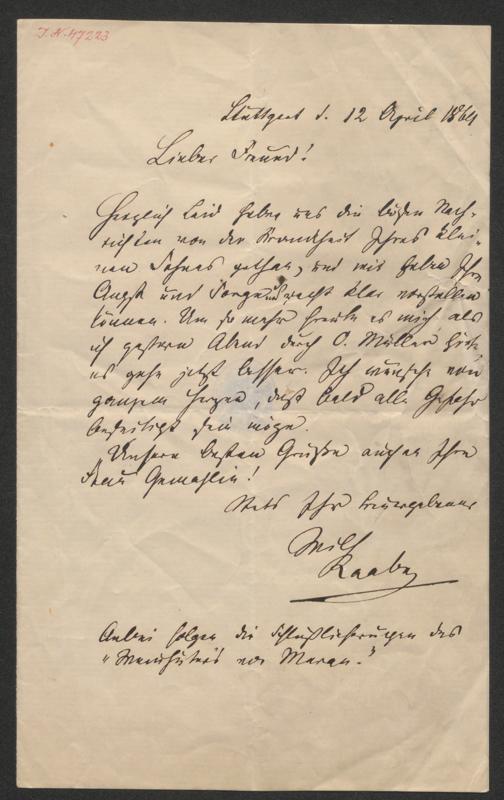 J.N. 47223
Stuttgart d. 12 April 1864
Lieber Freund!
Herzlich leid haben uns die bösen Nach-
richten von der Krankheit Ihres klei-
nen Sohnes gethan, und wir haben Ihre
Angst und Sorge uns recht klar vorstellen
können. Um so mehr freute es mich, als
ich gestern Abend durch C. Müller hörte
es gehe jetzt besser. Ich wünsche von
ganzem Herzen, daß bald alle Gefahr
beseitigt sein möge.
Unsere besten Grüße auch an Ihre
Frau Gemahlin!
Stets Ihr treuergebener
Wilh
Raabe
Anbei folgen die Schlußlieferungen des
"von Meran."